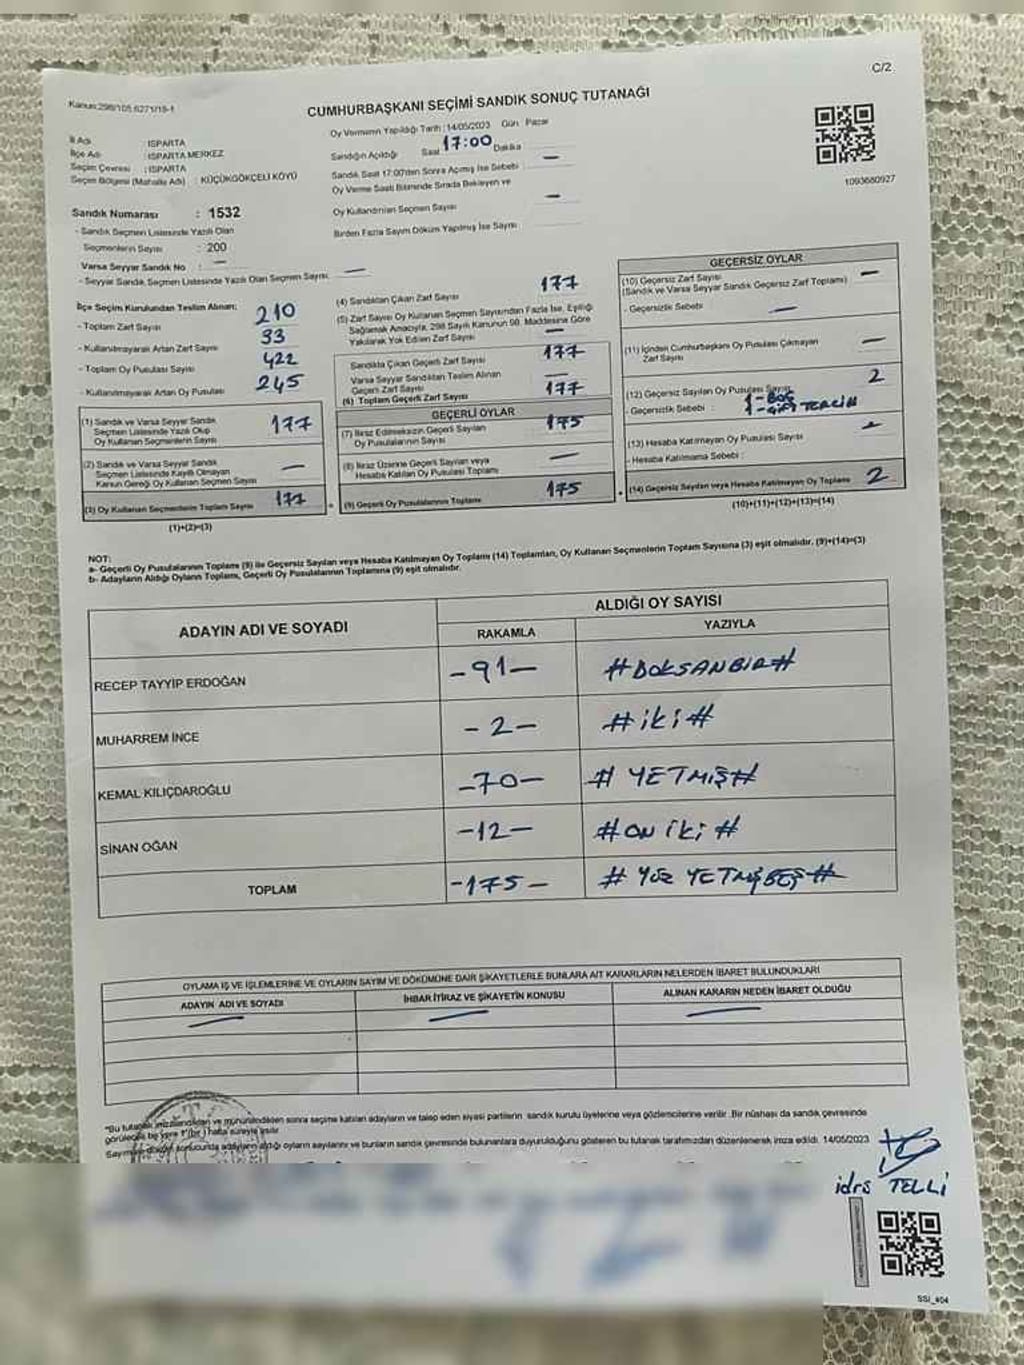 C/2
Kanun:298/105.6271/18-1
CUMHURBAŞKANI SEÇİMİ SANDIK SONUÇ TUTANAĞI
İl Adı : ISPARTA
İlçe Adı : ISPARTA MERKEZ
Seçim Çevresi : ISPARTA
Seçim Bölgesi (Mahalle Adı) : KÜÇÜKGÖKÇELİ KÖYÜ
Sandık Numarası : 1532
- Sandık Seçmen Listesinde Yazılı Olan
Seçmenlerin Sayısı : 200
Varsa Seyyar Sandık No : —
- Seyyar Sandık Seçmen Listesinde Yazılı Olan Seçmen Sayısı: —
Oy Vermenin Yapıldığı Tarih :14/05/2023 Gün Pazar
Sandığın Açıldığı Saat 17:00 Dakika
Sandık Saat 17:00'den Sonra Açılmış İse Sebebi —
Oy Verme Saati Bitiminde Sırada Bekleyen ve
Oy Kullandırılan Seçmen Sayısı —
Birden Fazla Sayım Döküm Yapılmış İse Sayısı
1093680927
İlçe Seçim Kurulundan Teslim Alınan;
- Toplam Zarf Sayısı 210
- Kullanılmayarak Artan Zarf Sayısı 33
- Toplam Oy Pusulası Sayısı 422
- Kullanılmayarak Artan Oy Pusulası 245
(1) Sandık ve Varsa Seyyar Sandık
Seçmen Listesinde Yazılı Olup
Oy Kullanan Seçmenlerin Sayısı 177
(2) Sandık ve Varsa Seyyar Sandık
Seçmen Listesinde Kayıtlı Olmayan
Kanun Gereği Oy Kullanan Seçmen Sayısı —
(3) Oy Kullanan Seçmenlerin Toplam Sayısı 177
(1)+(2)=(3)
(4) Sandıktan Çıkan Zarf Sayısı 177
(5) Zarf Sayısı Oy Kullanan Seçmen Sayısından Fazla İse, Eşitliği
Sağlamak Amacıyla, 298 Sayılı Kanunun 98. Maddesine Göre
Yakılarak Yok Edilen Zarf Sayısı —
Sandıkta Çıkan Geçerli Zarf Sayısı 177
Varsa Seyyar Sandıktan Teslim Alınan
Geçerli Zarf Sayısı —
(6) Toplam Geçerli Zarf Sayısı 177
GEÇERLİ OYLAR
(7) İtiraz Edilmeksizin Geçerli Sayılan
Oy Pusulalarının Sayısı 175
(8) İtiraz Üzerine Geçerli Sayılan veya
Hesaba Katılan Oy Pusulası Toplamı —
(9) Geçerli Oy Pusulalarının Toplamı 175
GEÇERSİZ OYLAR
(10) Geçersiz Zarf Sayısı
(Sandık ve Varsa Seyyar Sandık Geçersiz Zarf Toplamı) —
- Geçersizlik Sebebi: —
(11) İçinden Cumhurbaşkanı Oy Pusulası Çıkmayan
Zarf Sayısı —
(12) Geçersiz Sayılan Oy Pusulası Sayısı 2
- Geçersizlik Sebebi : 1-BOŞ
1-ÇİFT TERCİH
(13) Hesaba Katılmayan Oy Pusulası Sayısı
- Hesaba Katılmama Sebebi :
(14) Geçersiz Sayılan veya Hesaba Katılmayan Oy Toplamı 2
(10)+(11)+(12)+(13)=(14)
NOT:
a- Geçerli Oy Pusulalarının Toplamı (9) ile Geçersiz Sayılan veya Hesaba Katılmayan Oy Toplamı (14) Toplamları, Oy Kullanan Seçmenlerin Toplam Sayısına (3) eşit olmalıdır. (9)+(14)=(3)
b- Adayların Aldığı Oyların Toplamı, Geçerli Oy Pusulalarının Toplamına (9) eşit olmalıdır.
ADAYIN ADI VE SOYADI ALDIĞI OY SAYISI
RAKAMLA YAZIYLA
RECEP TAYYİP ERDOĞAN -91- #DOKSANBİR#
MUHARREM İNCE -2- #iki#
KEMAL KILIÇDAROĞLU -70- # YETMİŞ#
SİNAN OĞAN -12- #ON iki #
TOPLAM -175- # YÜZ YETMİŞBEŞ#
OYLAMA İŞ VE İŞLEMLERİNE VE OYLARIN SAYIM VE DÖKÜMÜNE DAİR ŞİKAYETLERLE BUNLARA AİT KARARLARIN NELERDEN İBARET BULUNDUKLARI
ADAYIN ADI VE SOYADI İHBAR İTİRAZ VE ŞİKAYETİN KONUSU ALINAN KARARIN NEDEN İBARET OLDUĞU
— — —
"Bu tutanak imzalandıktan ve mühürlendikten sonra seçime katılan adayların ve talep eden siyasi partilerin sandık kurulu üyelerine veya gözlemcilerine verilir .Bir nüshası da sandık çevresinde
görülecek bir yere 1 (bir ) hafta süreyle asılır
Sayım ve döküm sonucunda adayların aldığı oyların sayılarını ve bunların sandık çevresinde bulunanlara duyurulduğunu gösteren bu tutanak tarafımızdan düzenlenerek imza edildi. 14/05/2023
idrs TELLİ
SSI_404